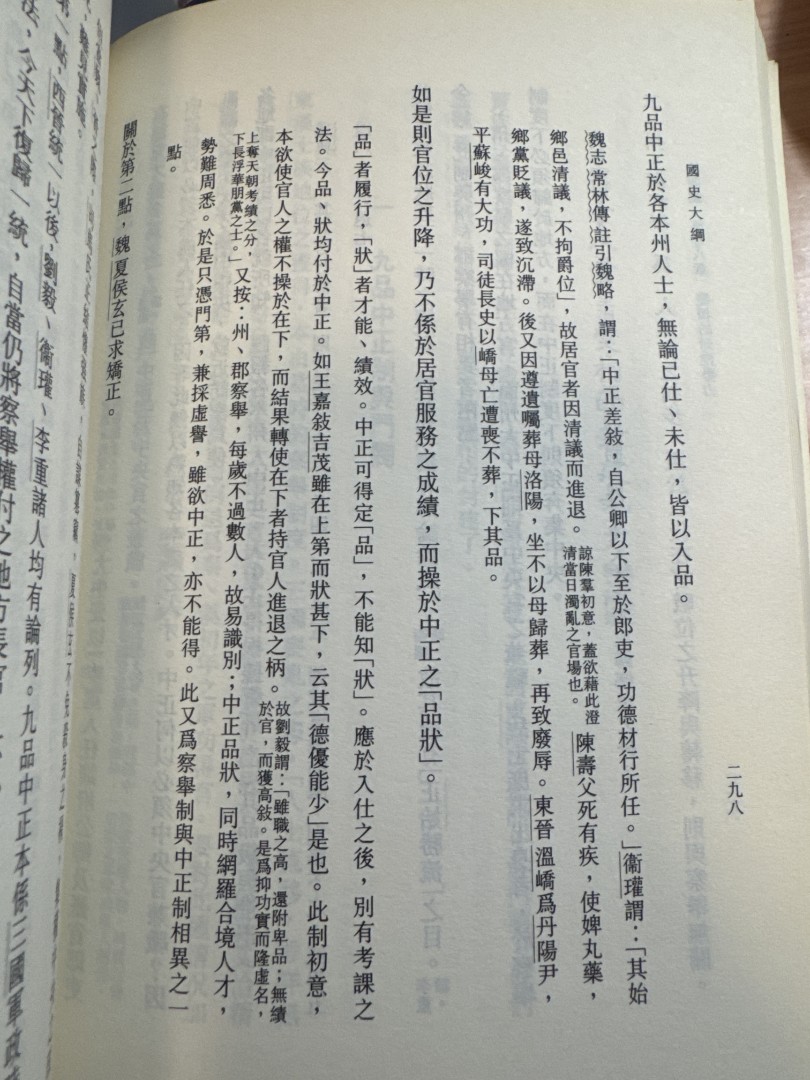 國史大綱
二九八
九品中正於各本州人士，無論已仕、未仕，皆以入品。
魏志常林傳註引魏略，謂：「中正差敍，自公卿以下至於郎吏，功德材行所任。」衞瓘謂：「其始
鄉邑清議，不拘爵位」，故居官者因清議而進退。諒陳羣初意，蓋欲藉此澄清當日濁亂之官場也。陳壽父死有疾，使婢丸藥，
鄉黨貶議，遂致沉滯。後又因遵遺囑葬母洛陽，坐不以母歸葬，再致廢辱。東晉溫嶠爲丹陽尹，
平蘇峻有大功，司徒長史以嶠母亡遭喪不葬，下其品。
如是則官位之升降，乃不係於居官服務之成績，而操於中正之「品狀」。
「品」者履行，「狀」者才能、績效。中正可得定「品」，不能知「狀」。應於入仕之後，別有考課之
法。今品、狀均付於中正。如王嘉敍吉茂雖在上第而狀甚下，云其「德優能少」是也。此制初意，
本欲使官人之權不操於在下，而結果轉使在下者持官人進退之柄。故劉毅謂：「雖職之高，還附卑品；無績於官，而獲高敍。是爲抑功實而隆虛名，
上奪天朝考績之分，下長浮華朋黨之士。」又按：州、郡察舉，每歲不過數人，故易識別；中正品狀，同時網羅合境人才，
勢難周悉。於是只憑門第，兼採虛譽，雖欲中正，亦不能得。此又爲察舉制與中正制相異之一
點。
關於第二點，魏夏侯玄已求矯正。
點，西晉統一以後，劉毅、衞瓘、李重諸人均有論列。九品中正本係三國軍政
法，今天下復歸一統，自當仍將察舉權付之地方長官